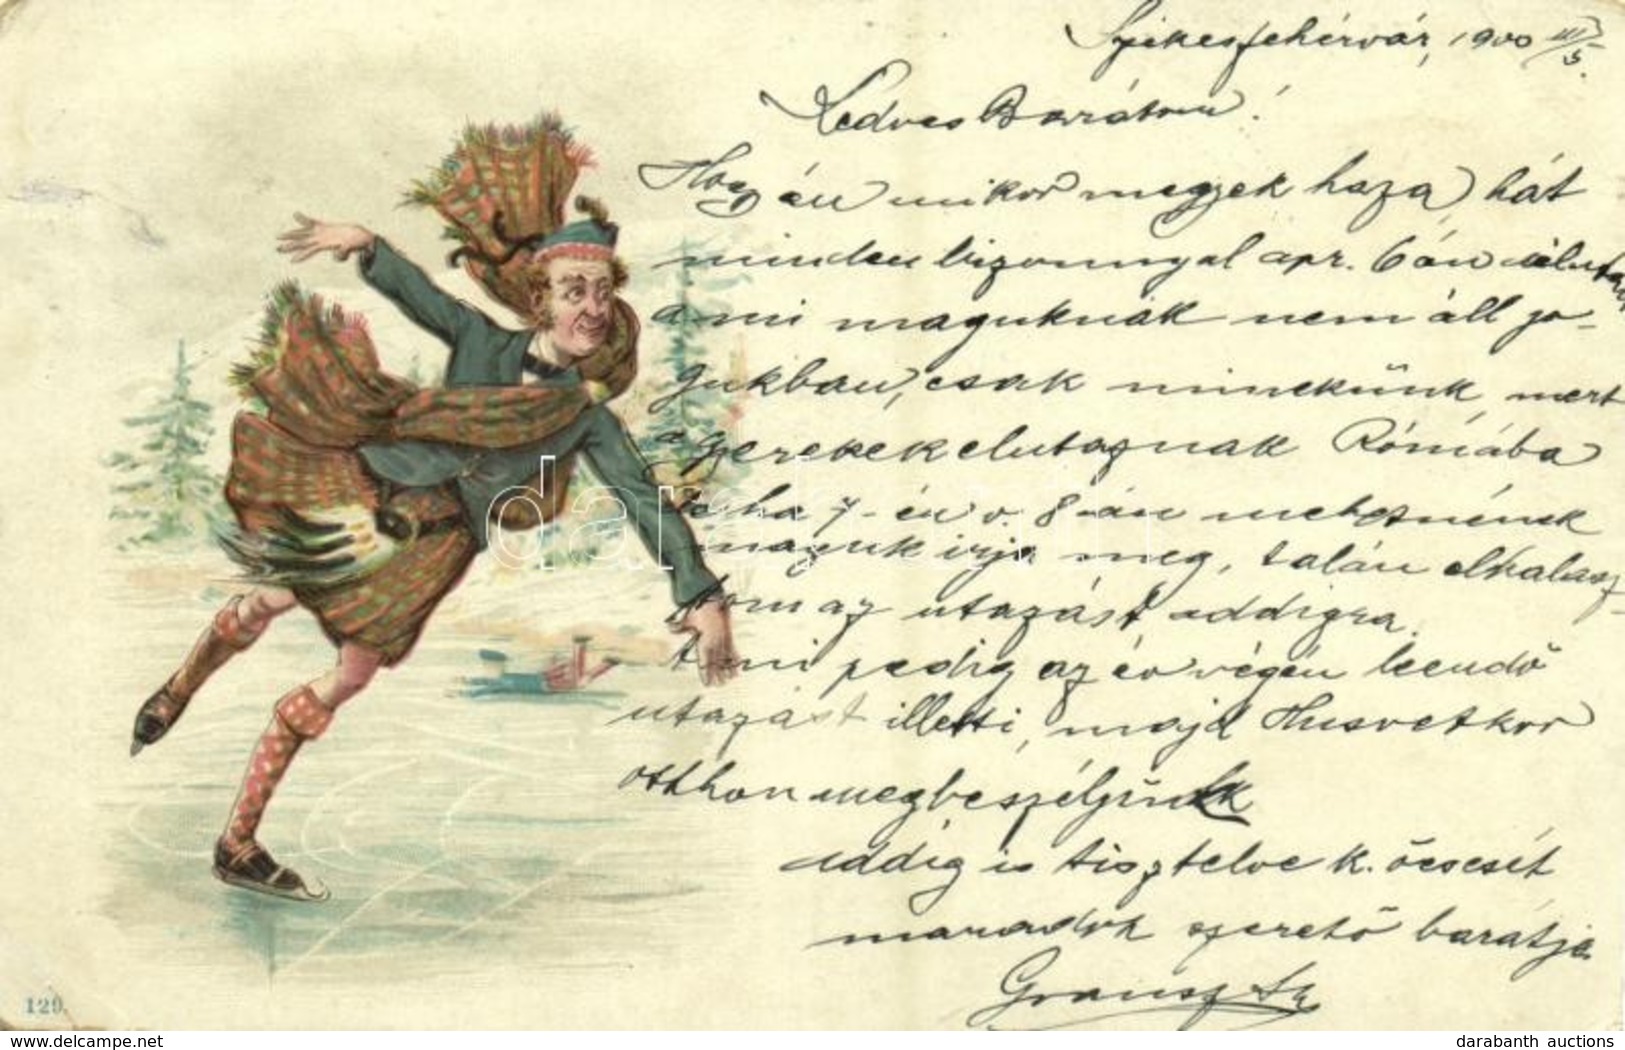 Székesfehérvár, 1900 III/5.
Kedves Barátom!
Hogy én mikor megyek haza, hát
minden bizonnyal apr. 6 án
a mi maguknak nem áll jo-
gukban, csak minekünk, mert
a gyerekek elutaznak Rómába
de ha 7-én v. 8-án mehetnének
maguk irja meg, talán elhalasz-
tom az utazást addigra.
A mi pedig az év végén leendő
utazást illeti, majd Husvetkor
otthon megbeszéljük
addig is tisztelve k. öcsését
maradok szerető barátja
129.
darabanth
delcampe.net
darabanth auctions